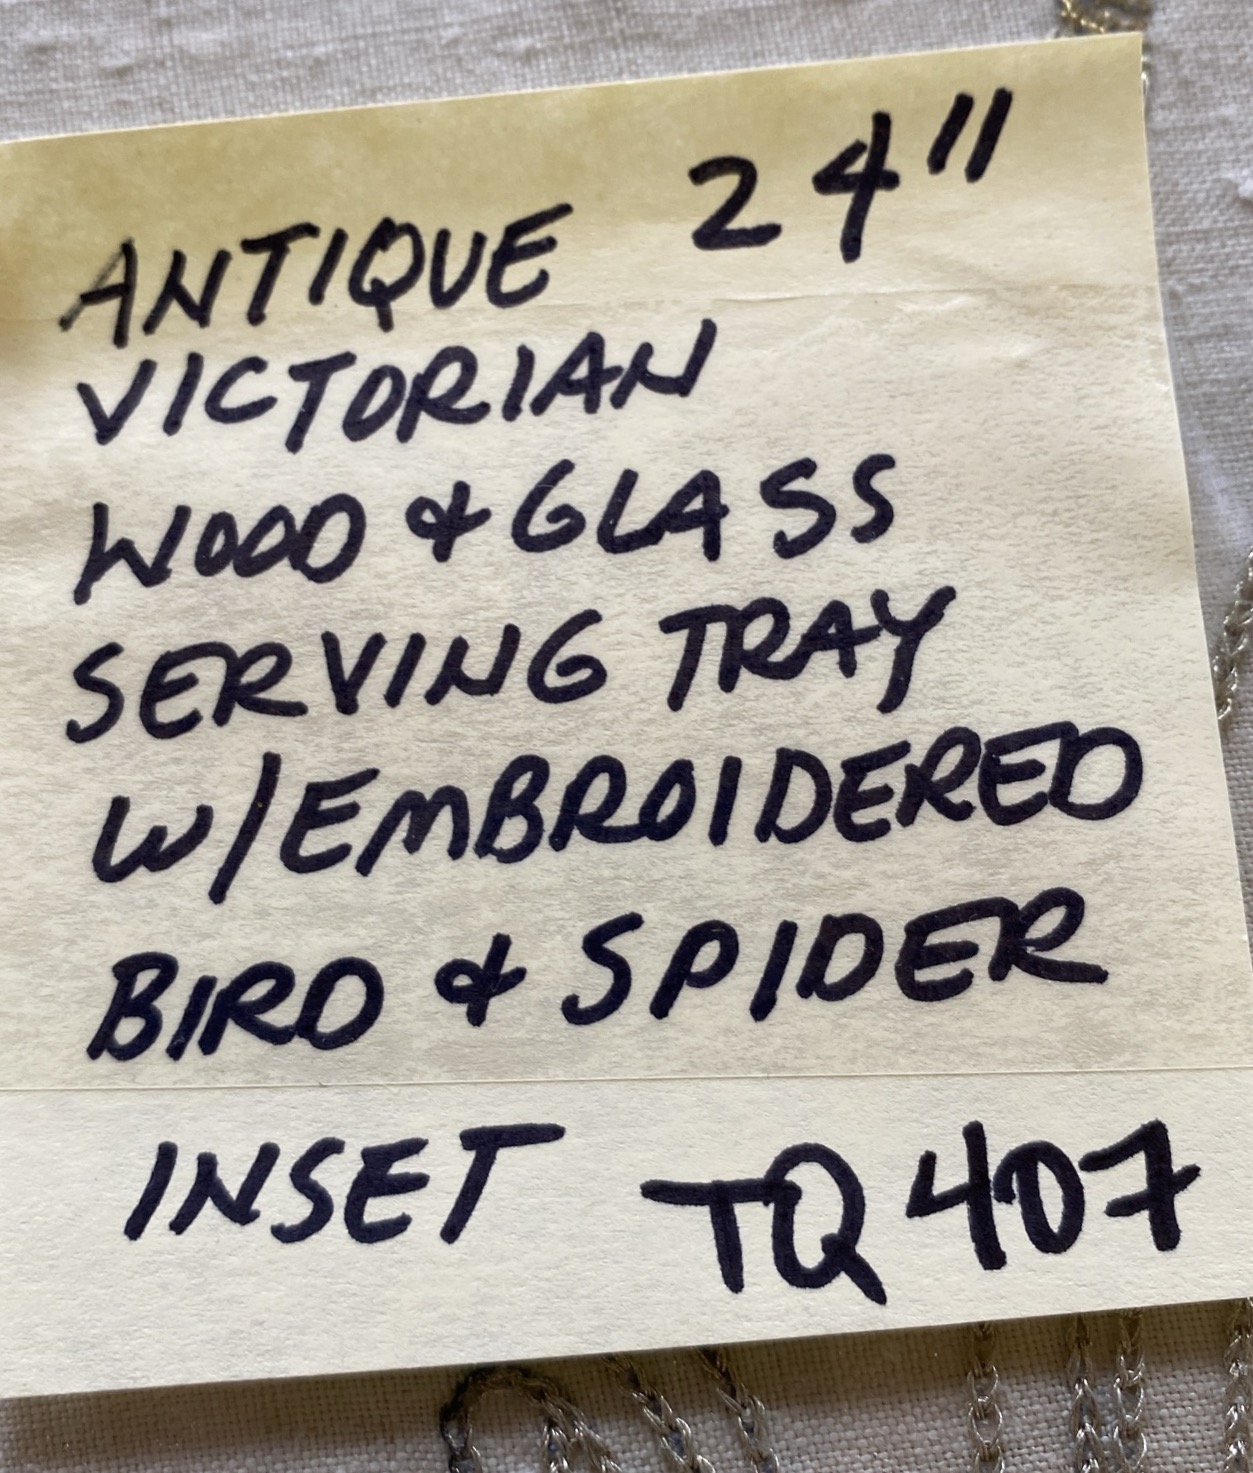 ANTIQUE 24"
VICTORIAN
WOOD & GLASS
SERVING TRAY
W/EMBROIDERED
BIRD & SPIDER
INSET TQ407